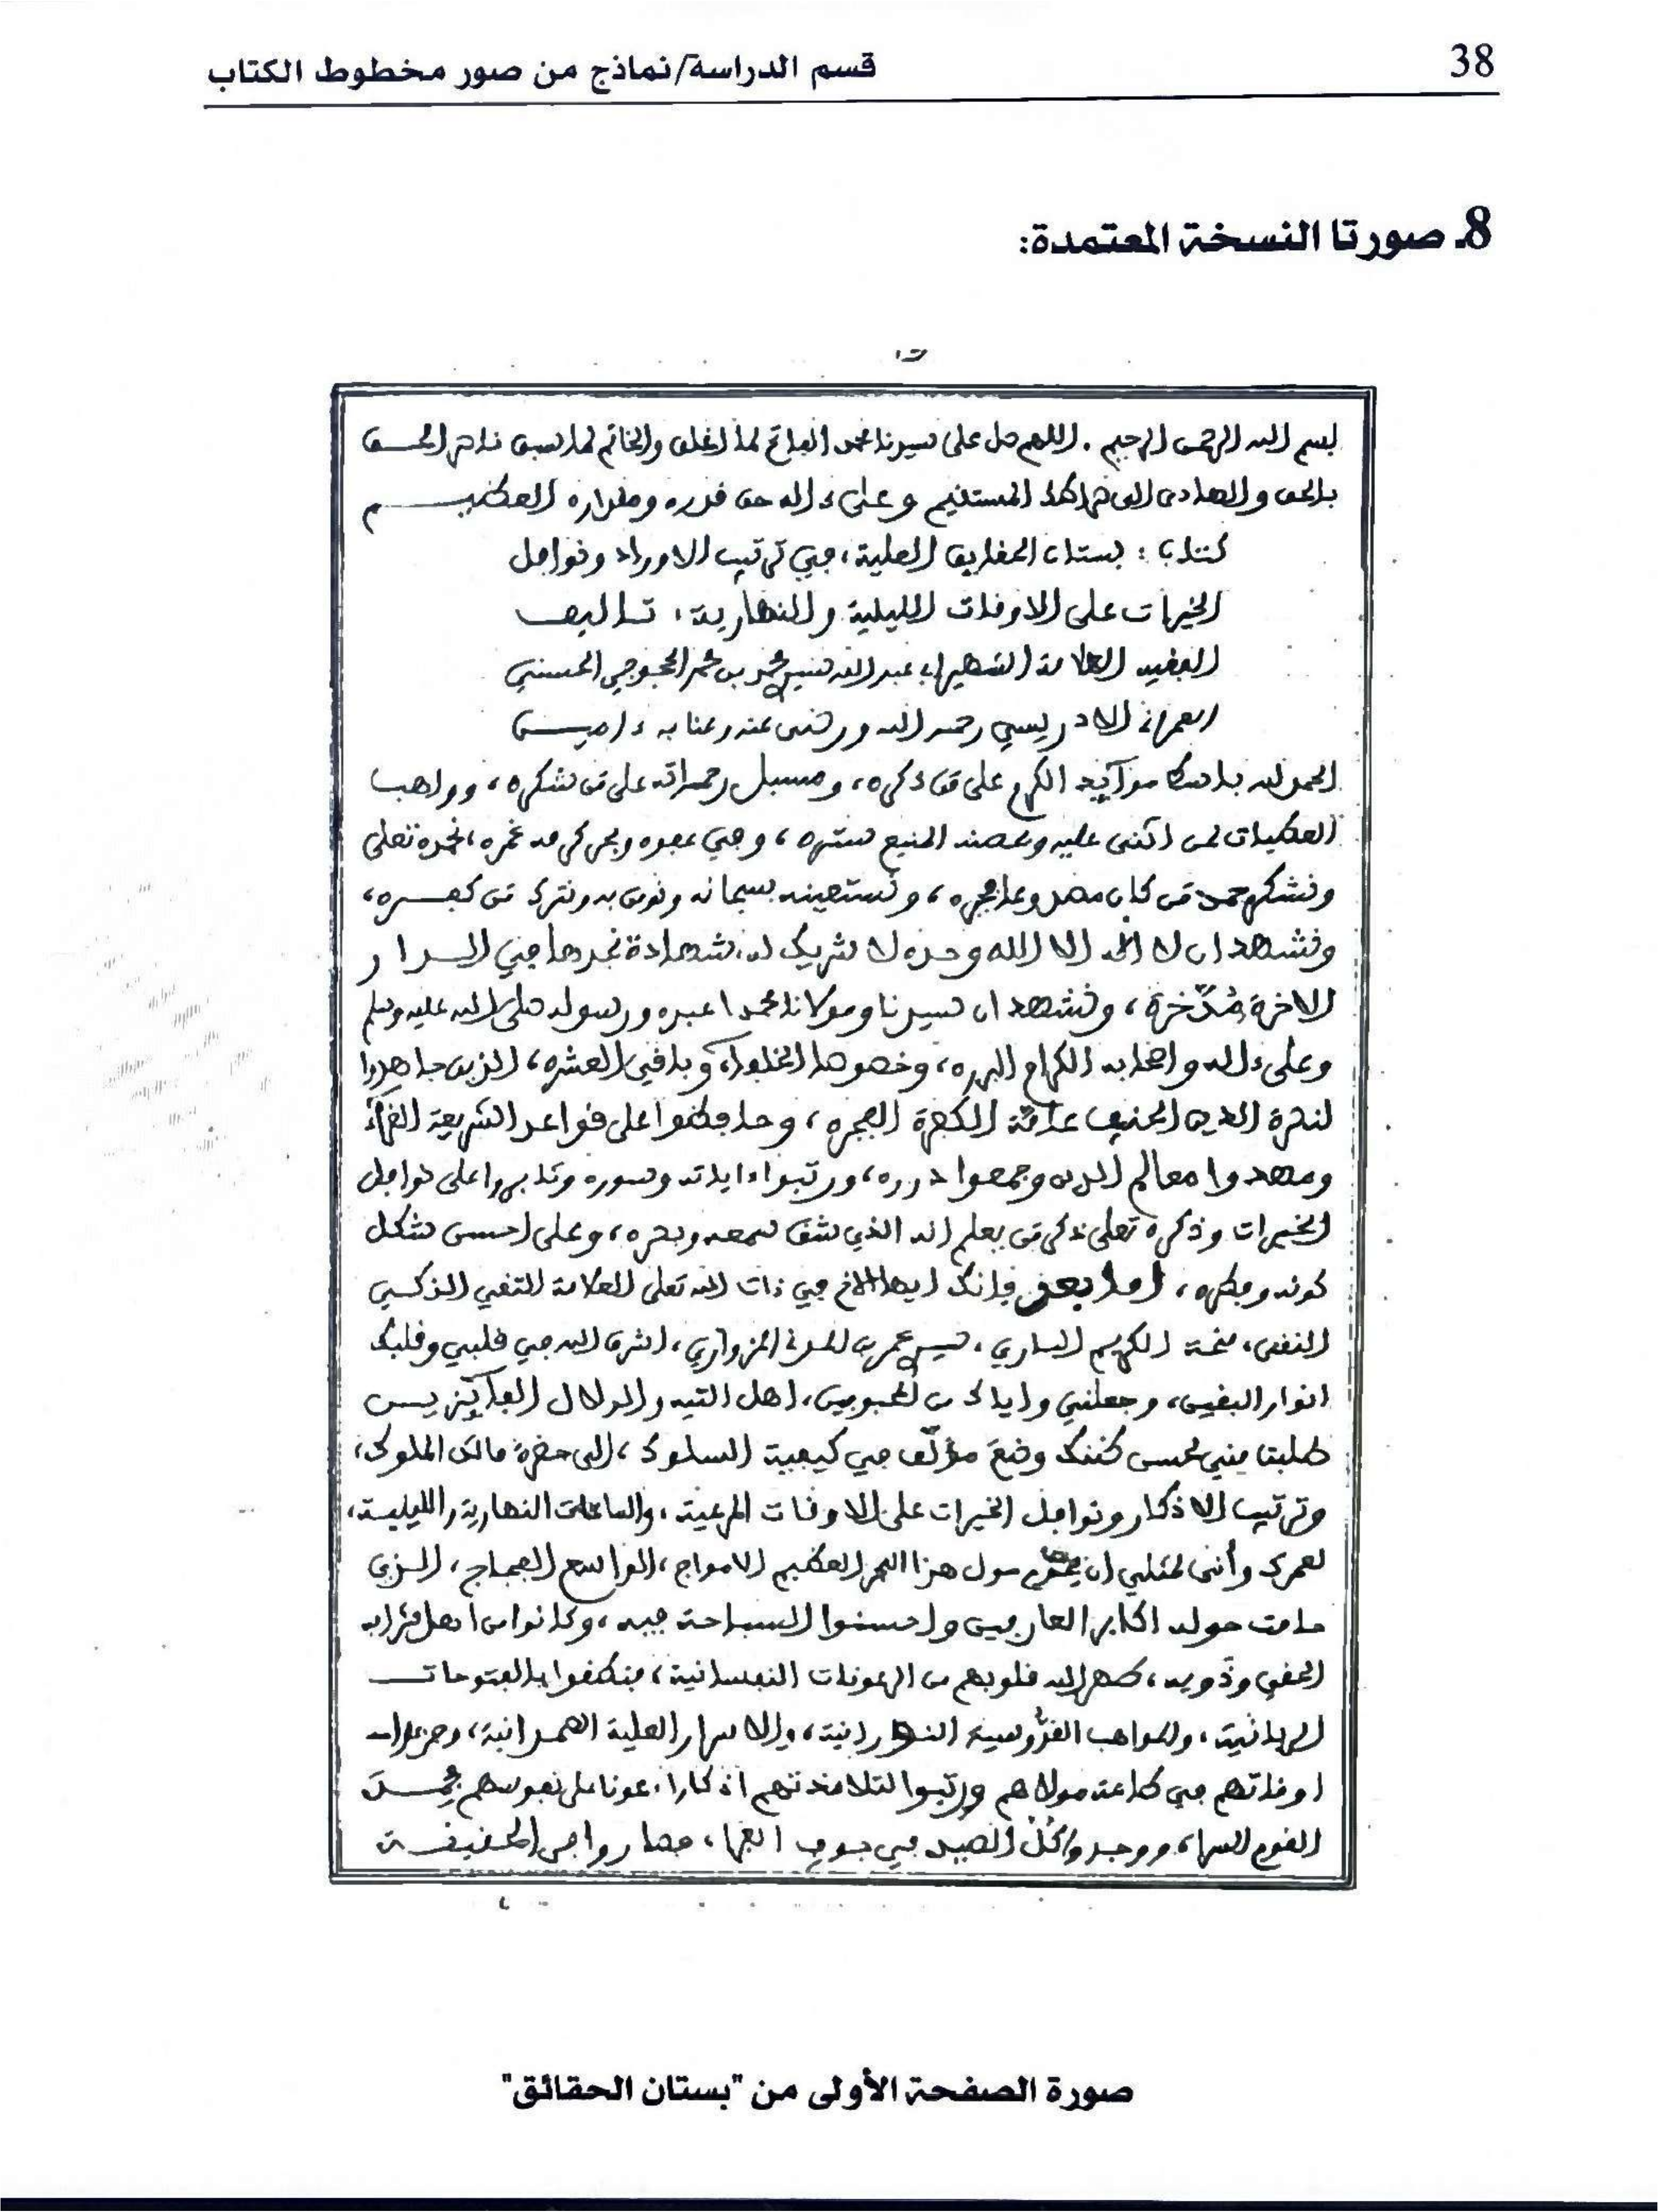 38
قسم الدراسة/نماذج من صور مخطوط الكتاب
8ـ صورتا النسخة المعتمدة:
بسم الله الرحمن الرحيم . اللهم صل على سيدنا محمد الفاتح لما اغلق والخاتم لما سبق ناصر الحق
بالحق والهادي الى صراطك المستقيم وعلى ءاله حق قدره ومقداره العظيم
كتاب : بستان الحقايق العلية، في ترتيب الاوراد ونوافل
الخيرات على الاوقات الليلية والنهارية، تاليف
الفقيه العلامة الشهير ابي عبد الله سيدي محمد بن محمد الحجوجي الحسني
الادريسي رحمه الله ورضي عنه وعنا به ءامين
الحمد لله باسط موآيد الكرم على من ذكره، ومسبل رحماته على من شكره، وواهب
العطيات لمن اثنى عليه وبحصنه المنيع ستره، وفي عفوه وبحر كرمه غمره، نحمده تعلى
ونشكره حمد من كان، ونستعينه سبحانه ونومن به ونترك من كفره،
ونشهد ان لا اله الا الله وحده لا شريك له، شهادة نجدها في الدار
الاخرة مُدّخرة، ونشهد ان سيدنا ومولانا محمدا عبده ورسوله صلى الله عليه وسلم
وعلى ءاله واصحابه الكرام البرره، وخصوصا الخلفاء وباقي العشره، الذين جاهدوا
لنصرة الدين الحنيف عامّة الكفرة الفجره، وحافظوا على قواعد الشريعة الغراء
ومهدوا معالم الدين وجمعوا درره، ورتبوا ءاياته وسوره وثابروا على نوافل
الخيرات وذكره تعلى ذكر من يعلم انه الذي شق سمعه وبصره، وعلى احسن شكل
كونه وفطره، اما بعد فإنك ايها الاخ في ذات الله تعلى العلامة التقي الزكي
النقي، منحة الكريم الباري، سيدي عمر بن المدني المزواري، اشرق الله في قلبي وقلبك
انوار اليقين، وجعلني واياك من المحبوبين، اهل التيه والدلال الفآيزين
طلبت مني لحسن ظنك وضع مؤلّف في كيفية السلوك، الى حضرة مالك الملوك،
وترتيب الاذكار ونوافل الخيرات على الاوقات المرعية، والساعات النهارية والليلية،
لعمرك وأنى لمثلي ان يخوض حول هذا البحر العظيم الامواج، الواسع الفجاج، الذي
حامت حوله اكابر العارفين واحسنوا السباحة فيه، وكانوا من اهل
الحق وذويه، طهر الله قلوبهم من الرعونات النفسانية، فنطقوا بالفتوحات
الربانية، والمواهب القدُّوسية النورانية، والاسرار العلية الصمدانية،
اوقاتهم في طاعة مولاهم ورتبوا لتلامذتهم اذكارا، عونا على نفوسهم
القوم السرا، ووجدوا كُلّ الصيد في جوف الفرا، فصاروا في الحقيقة
صورة الصفحة الأولى من "بستان الحقائق"